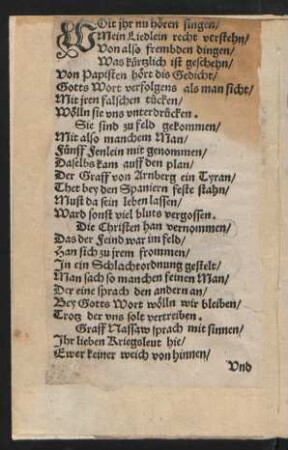 WOlt jhr nu hören singen/
Mein Liedlein recht verstehn/
Von also frembden dingen/
Was kürtzlich ist geschehn/
Von Papisten hört dis Gedicht/
Gotts Wort verfolgens als man sicht/
Mit jren falschen tücken/
Wölln sie vns vnterdrücken.
Sie sind zu feld gekommen/
Mit also manchem Man/
Fünff Fenlein mit genommen/
Daselbs kam auff den plan/
Der Graff von Arnberg ein Tyran/
Thet bey den Spaniern feste stahn/
Must da sein leben lassen/
Ward sonst viel bluts vergossen.
Die Christen han vernommen/
Das der Feind war im feld/
Han sich zu jrem frommen/
In ein Schlachtordnung gestelt/
Man sach so manchen feinen Man/
Der eine sprach den andern an/
Bey Gotts Wort wölln wir bleiben/
Trotz der vns solt vertreiben.
Graff Nassaw sprach mit sinnen/
Jhr lieben Kriegsleut hie/
Ewer keiner weich von hinnen/
Vnd